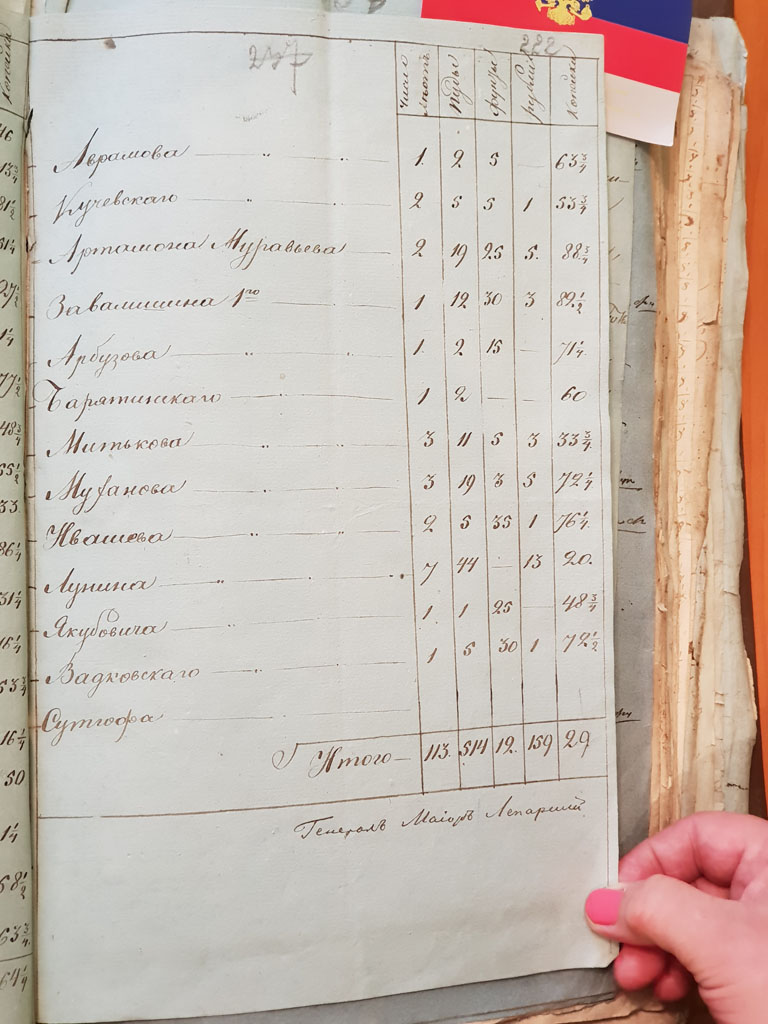 247
222
Число мѣстъ пуды фунты рубли копѣйки
Аврамова — „ — 1. 2 5 — 63 3/4
Кучевскаго — „ — 2 5 5 1 53 3/4
Артамона Муравьева — 2 19 25 5. 88 3/4
Завалишина 1го — 1 12 30 3 82 1/2
Арбузова — „ — „ — 1. 2 15 — 71 1/4
Барятинскаго — 1 2 — — 60
Митькова — „ — 3 11 5 3 33 3/4
Муханова — „ — „ — 3 19 3 5 72 1/4
Ивашева — „ — „ — 2 5 35 1 76 1/4
Лунина — „ — „ — 7 44 — 13 20.
Якубовича — „ — 1 1 25 — 48 3/4
Вадковскаго — „ — 1 5 30 1 72 1/2
Сутгофа — „ —
Итого — 113. 514 12. 159 29
Генералъ Маіоръ Лепарскій